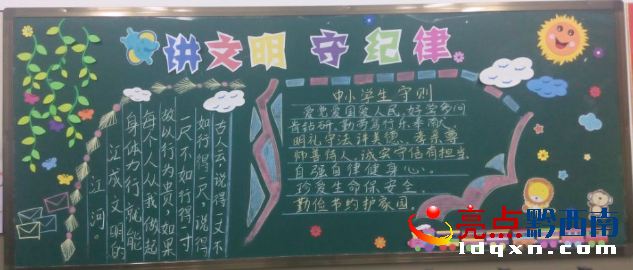 讲文明 守纪律
古人云：说得一丈不
如行得一尺，说得
一尺不如行得一寸
故以行为贵。如果
每个人从我做起
身体力行，就能
汇成文明的
江河。
中小学生守则
爱党爱国爱人民，好学多问
肯钻研，勤劳笃行乐奉献，
明礼守法讲美德，孝亲尊
师善待人，诚实守信有担当，
自强自律健身心，
珍爱生命保安全，
勤俭节约护家园。
亮点黔西南
ldqxn.com